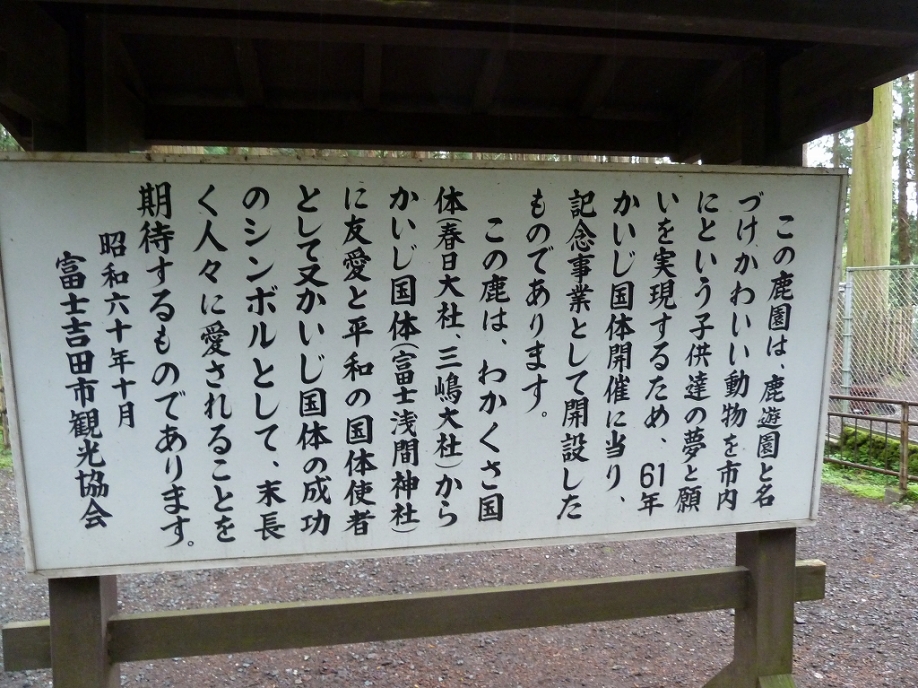 この鹿園は、鹿遊園と名
づけかわいい動物を市内
にという子供達の夢と願
いを実現するため、61年
かいじ国体開催に当り、
記念事業として開設した
ものであります。
この鹿は、わかくさ国
体(春日大社、三嶋大社)から
かいじ国体(富士浅間神社)
に友愛と平和の国体使者
として又かいじ国体の成功
のシンボルとして、末長
く人々に愛されることを
期待するものであります。
昭和六十年十月
富士吉田市観光協会